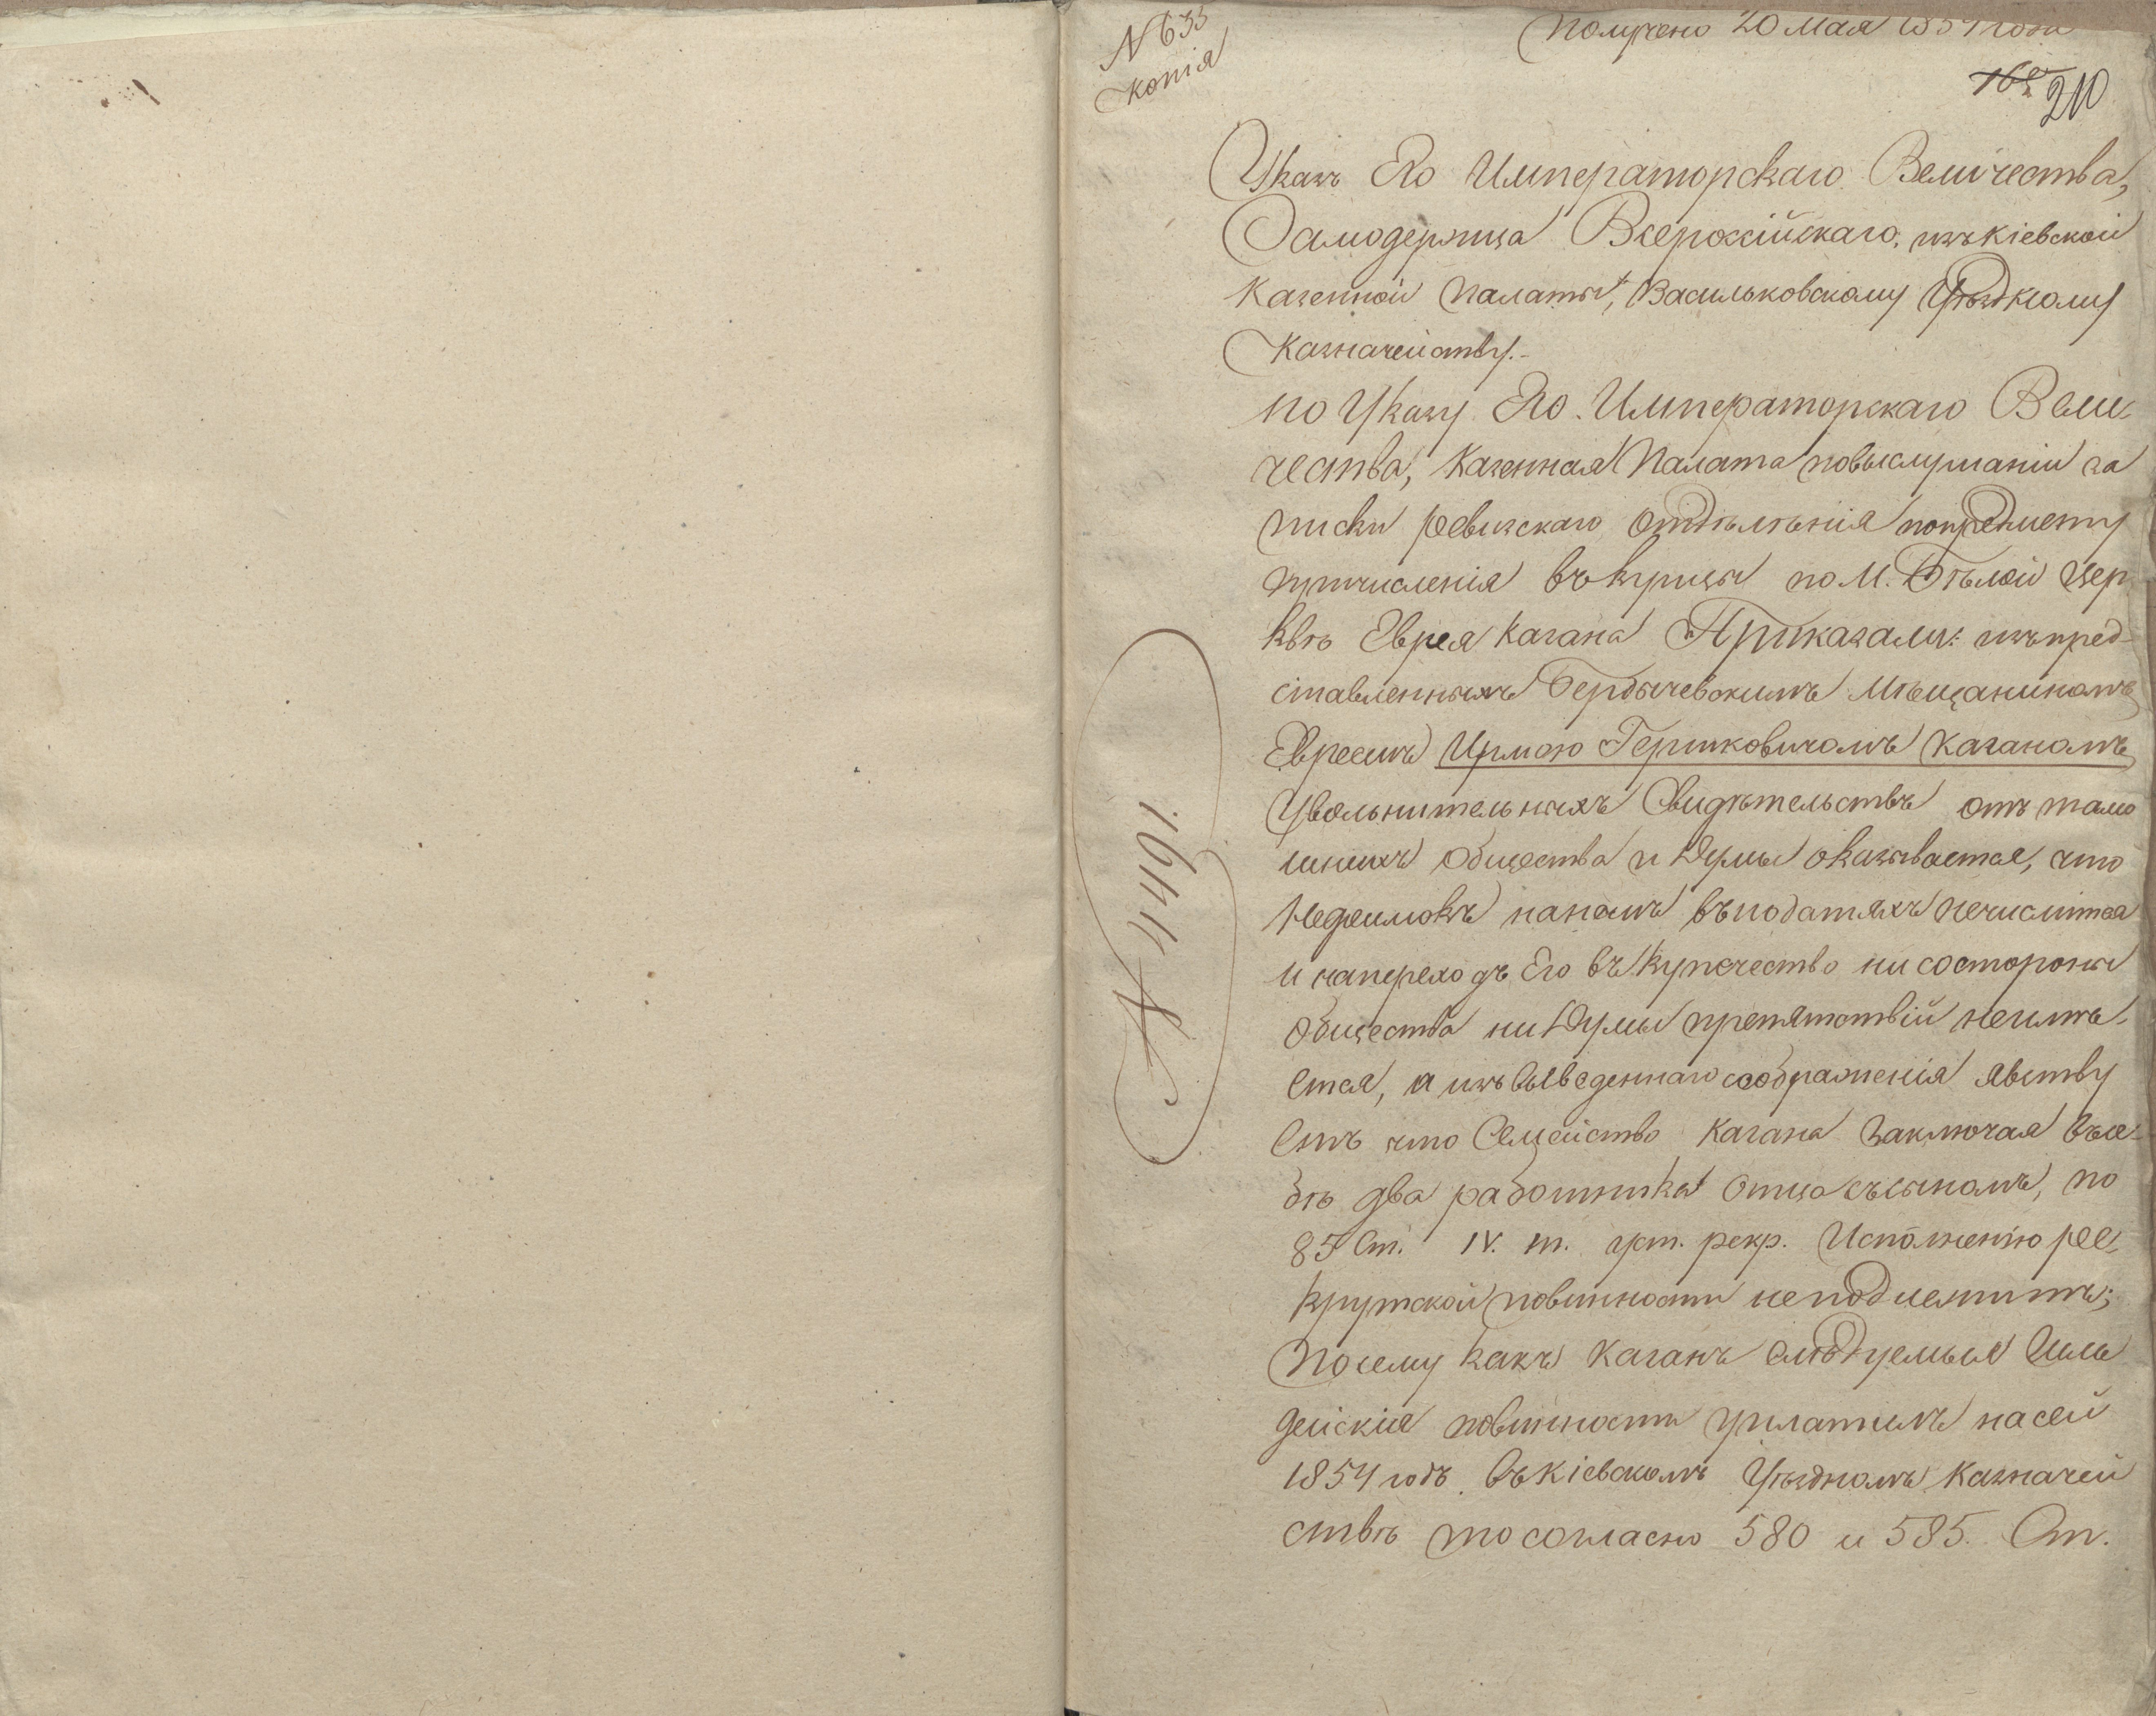 N 633
копія
Получено 20 Мая 1854 года
210
Указъ Его Императорскаго Величества,
Самодержца Всероссійскаго, изъ Кіевской
Казенной Палаты, Васильковскому Уѣздному
Казначейству.-
По Указу Его Императорскаго Вели-
чества, Казенная Палата повыслушаніи за
писки ревизскаго отдѣлѣнія попредмету
причисленія въ купцы по М. Бѣлой Цер
квѣ Еврея Кагана Приказали: изъ пред-
ставленныхъ Бердычевскимъ мѣщаниномъ
Евреемъ Ирмою Гершковичомъ Каганомъ
Увольнительныхъ Свидѣтельствъ отъ тамо
шнихъ Общества и Думы оказывается, что
Недоимокъ нанемъ въподатяхъ нечислится
и напереходъ Его въ Купечество ни состороны
Общества ни Думы препятствій неимѣ-
ется, а изъ выведеннаго соображенія явству
етъ что Семейство Кагана Заключая въсе-
бѣ два работника Отца съсыномъ, по
85 Ст. IV. т. уст. рекр. Исполненію рек-
крутской повинности неподлежитъ;
Посему какъ Каганъ слѣдуемыя Гиль
дейскія повинности уплатилъ насей
1854 годъ въ Кіевскомъ Уѣздномъ Казначей
ствѣ то согласно 580 и 585. Ст.
N 4491.